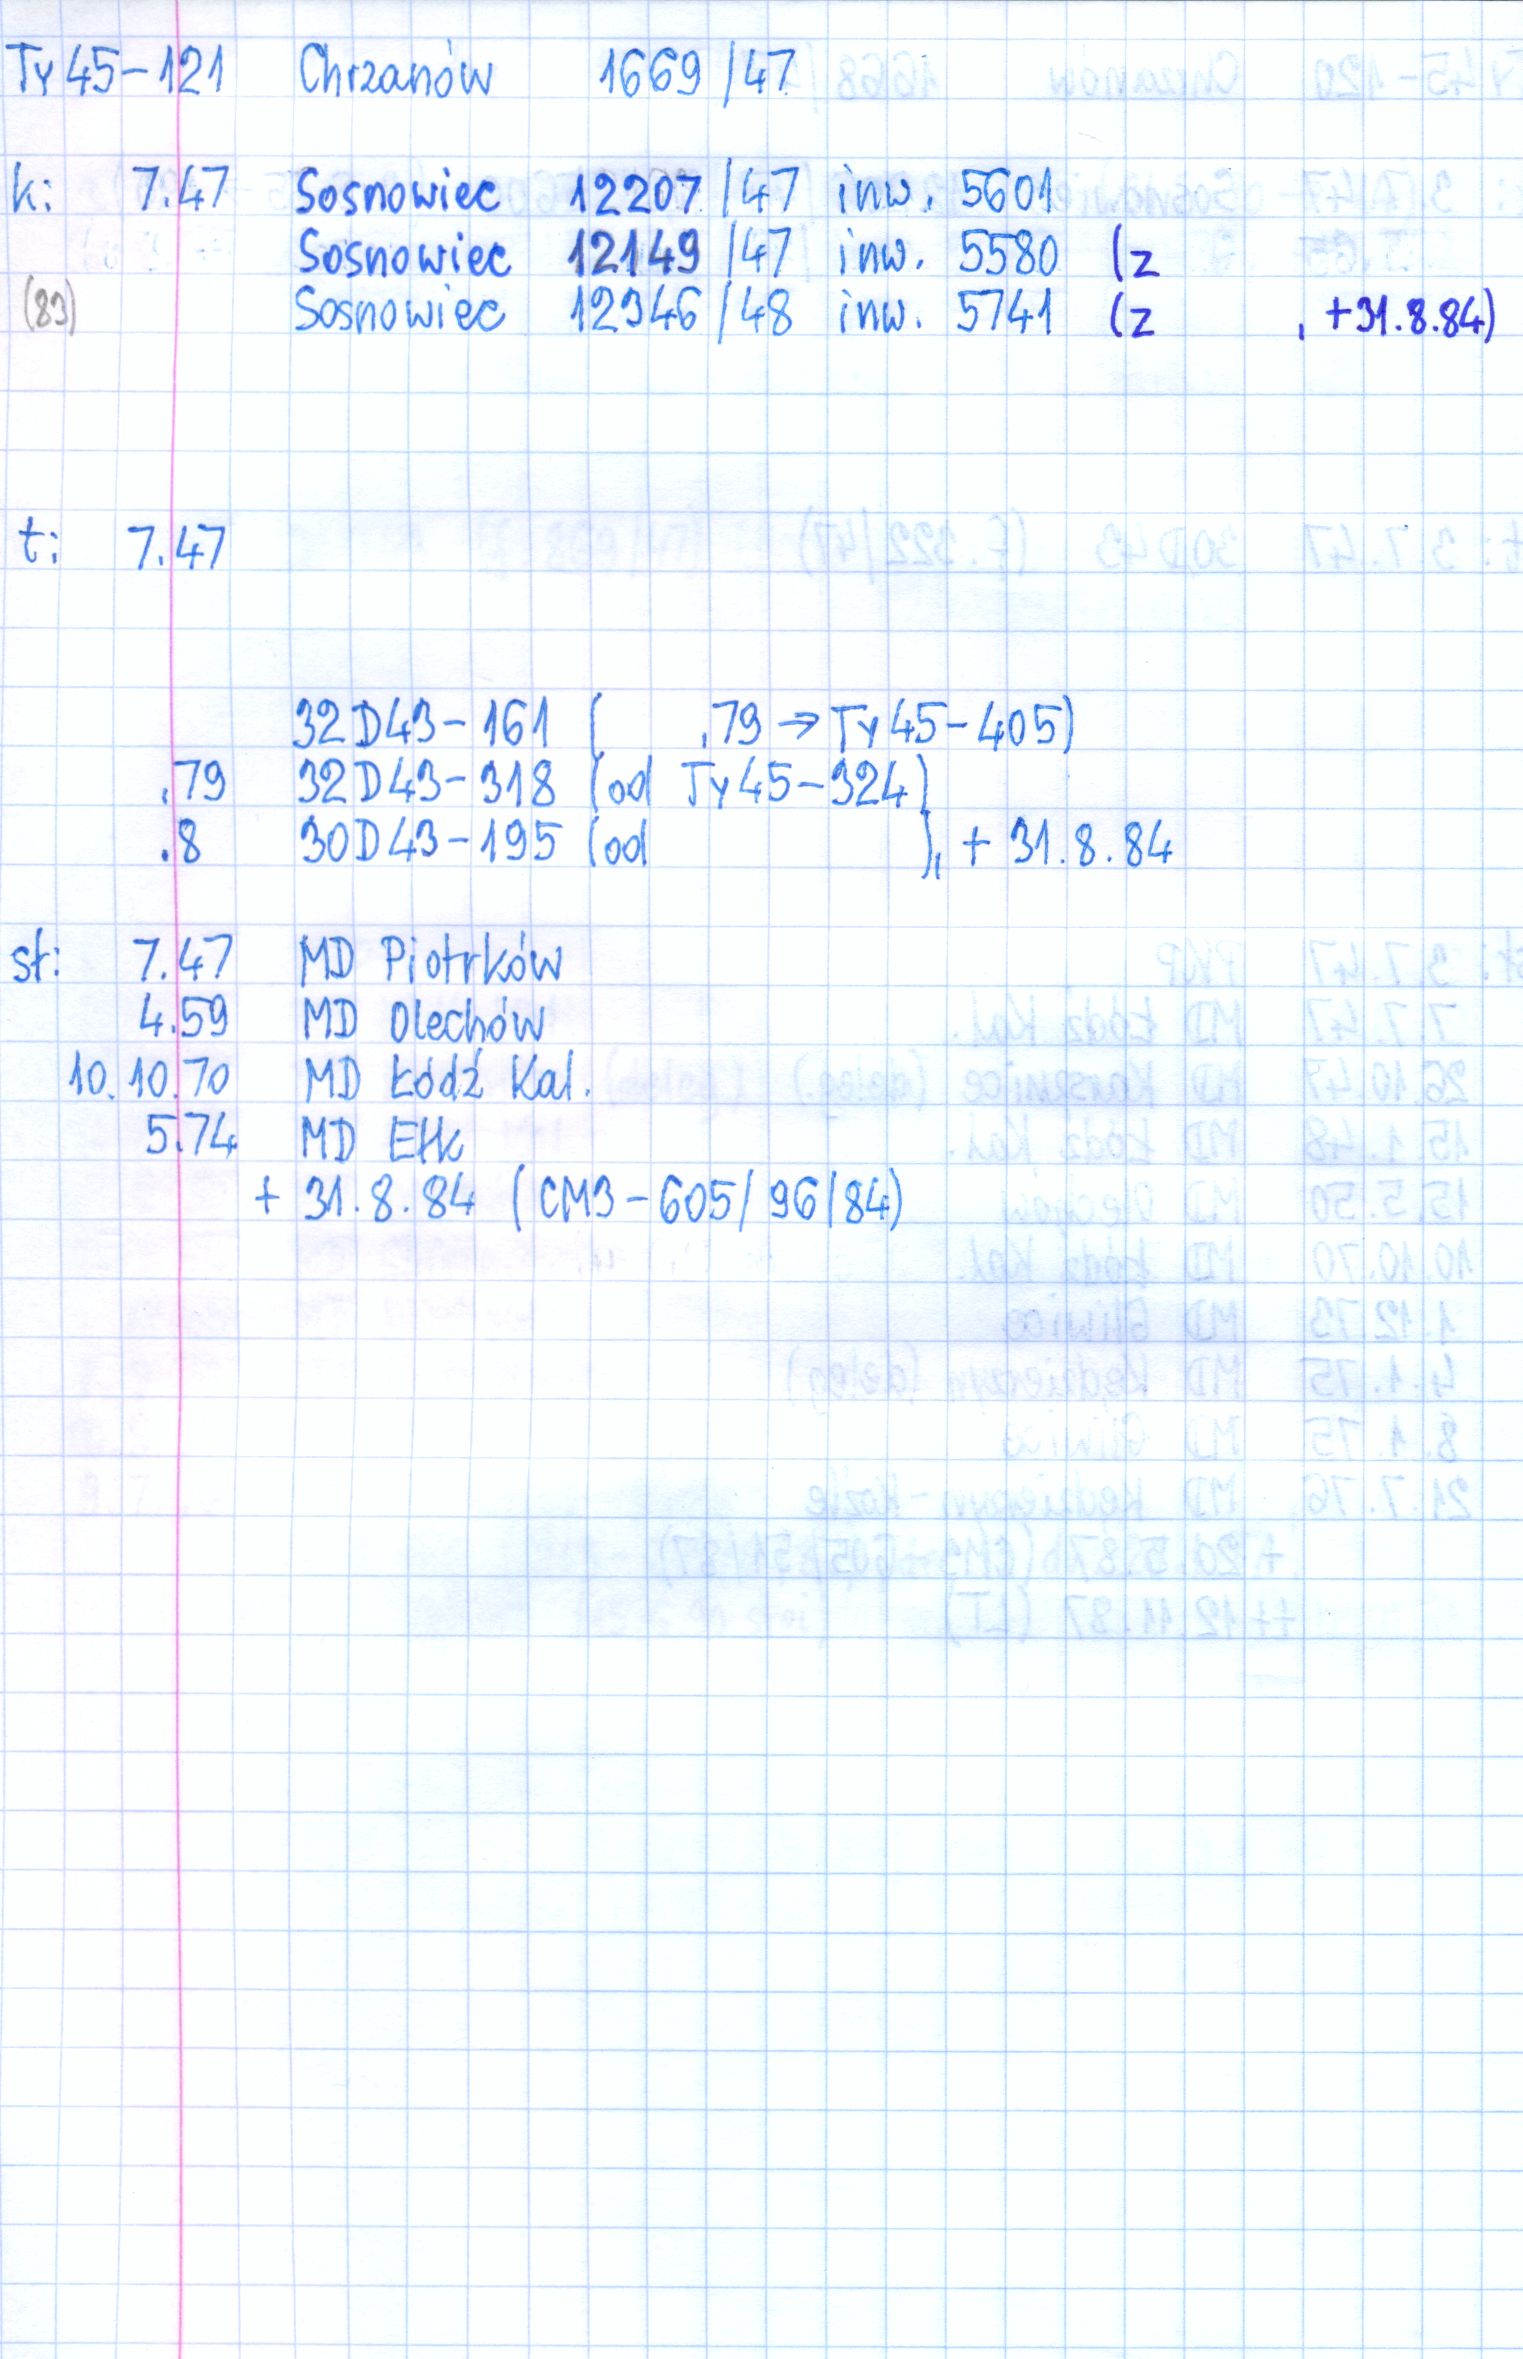 Ty45-121 Chrzanów 1669/47
k: 7.47 Sosnowiec 12207/47 inw. 5601
Sosnowiec 12149/47 inw. 5580 (z
(83) Sosnowiec 12346/48 inw. 5741 (z , +31.8.84)
t: 7.47
32D43-161 ( .79 → Ty45-405)
.79 32D43-318 (od Ty45-324)
.8 30D43-195 (od ), + 31.8.84
sł: 7.47 MD Piotrków
4.59 MD Olechów
10.10.70 MD Łódź Kal.
5.74 MD Ełk
+ 31.8.84 (CM3-605/96/84)